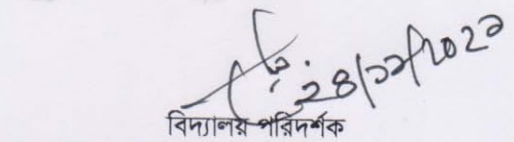 ২৪/১১/২০২১
বিদ্যালয় পরিদর্শক